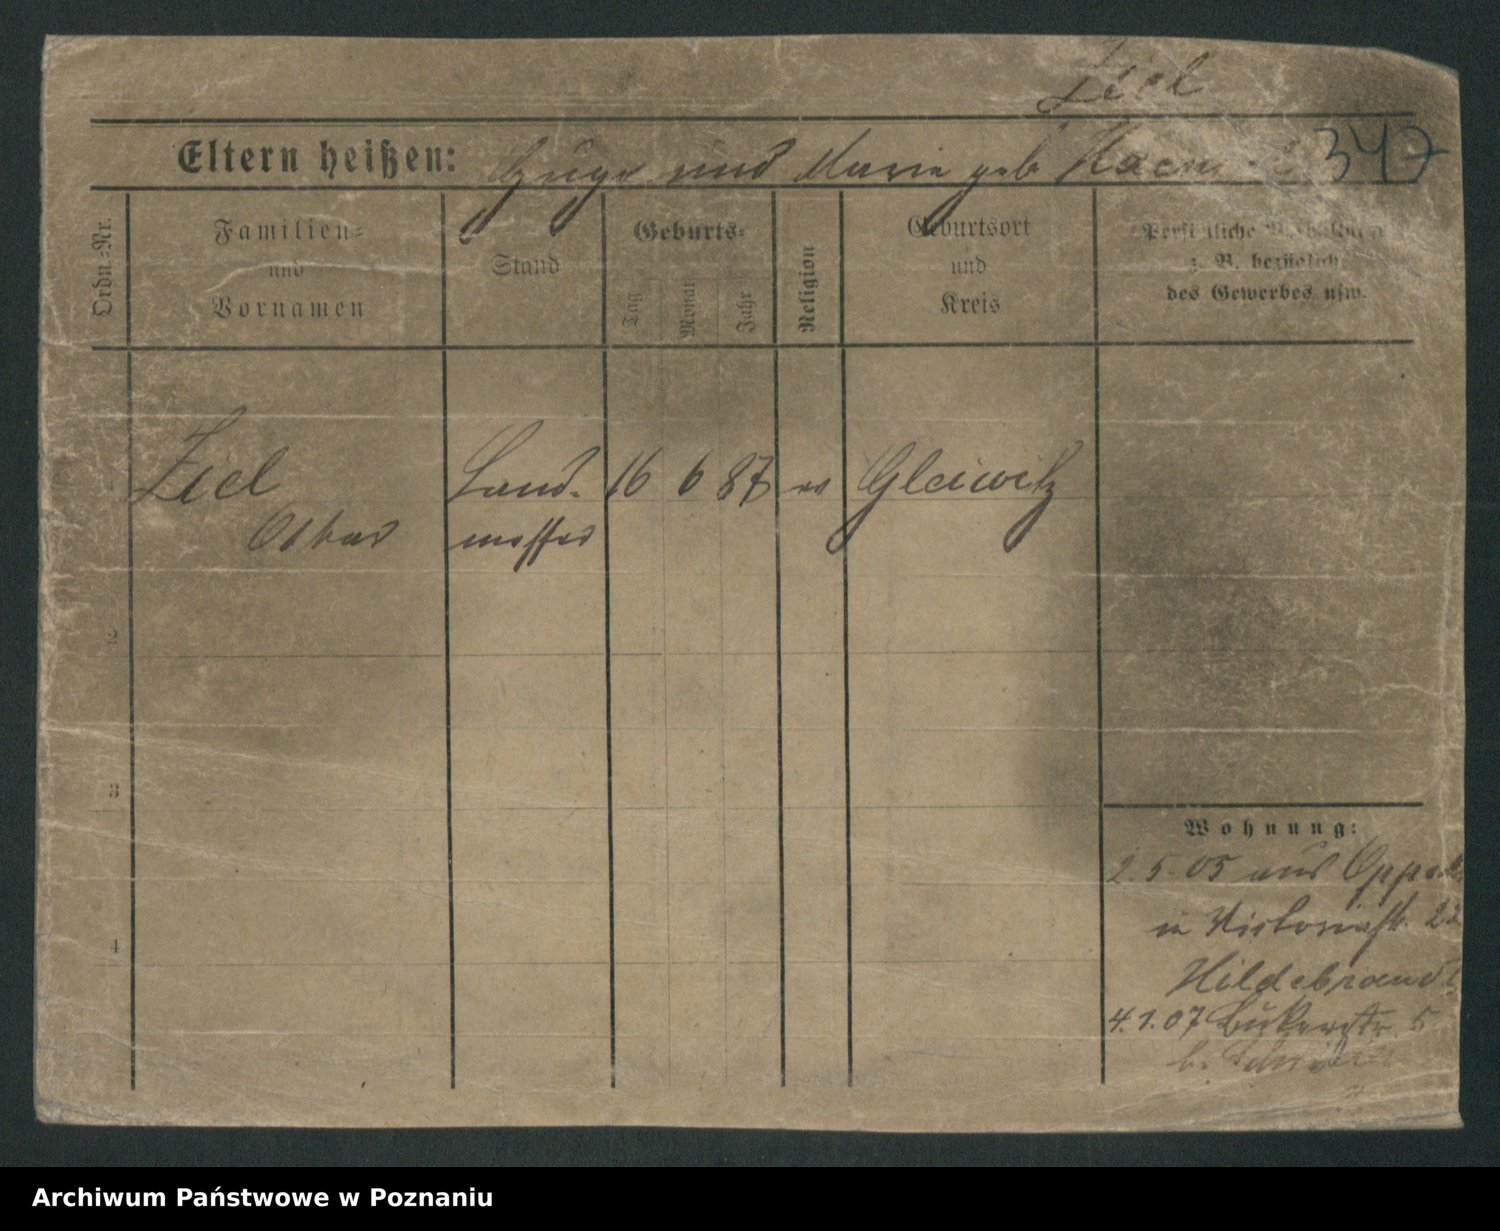 Ziel
Eltern heißen: Hugo und Marie geb 347
Ordn.=Nr.
Familien=
und
Vornamen
Stand
Geburts=
Tag
Monat
Jahr
Religion
Geburtsort
und
Kreis
Persönliche
z. B. bezüglich
des Gewerbes usw.
Ziel
Land-
16 6 87 ev Gleiwitz
Oskar
messer
2
3
4
Wohnung:
2 5 05 aus Oppeln
in Victoriastr. 22
Hildebrandt
4.1.07 Bukerstr. 5
b.
Archiwum Państwowe w Poznaniu